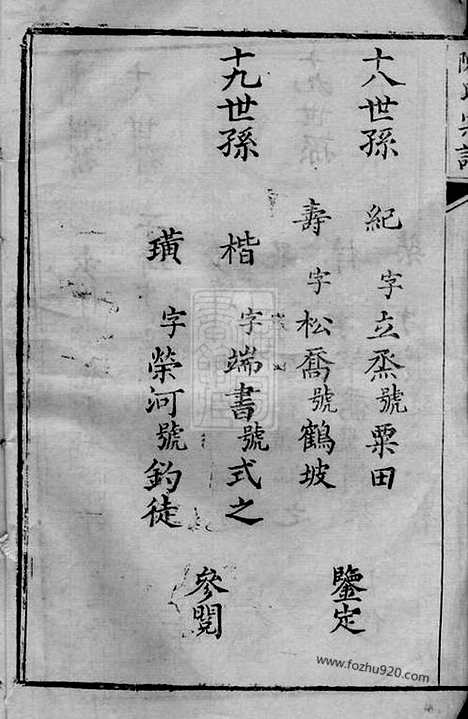 十八世孫 紀 字立烝號粟田
壽 字松喬號鶴坡
鑒定
十九世孫 楷 字端書號式之
璜 字榮河號釣徒
參閱
www.fozhu920.com